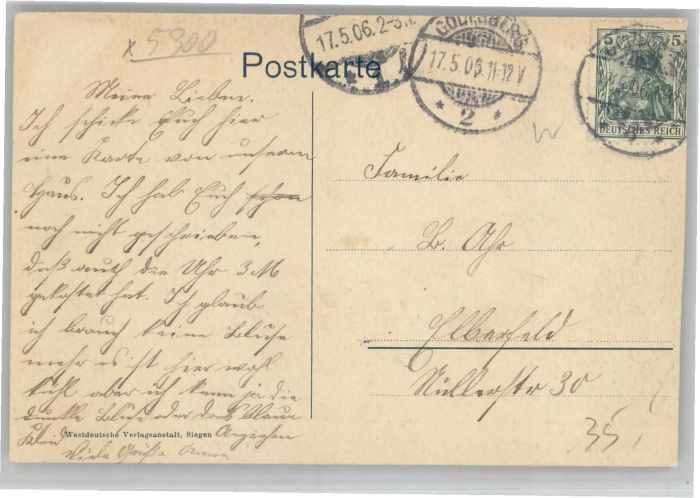 x 5300
Postkarte
17.5.06. 2-3 N.
GODESBERG
17.5.06. 11-12 V
* 2 *
5 5
DEUTSCHES REICH
Meine Lieben.
Ich schicke Euch hier
eine Karte von unserm
Haus. Ich hab Euch schon
noch nicht geschrieben,
daß auch die Uhr 3 M
gekostet hat. Ich glaub
ich brauch keine Bluse
mehr es ist hier wohl
kühl aber ich kann ja die
dunkle Bluse oder das blaue
Kleid Anziehen
Viele Grüße Anna
Westdeutsche Verlagsanstalt, Siegen
Familie
B. Ahr
Elberfeld
Nüllerstr 30
35